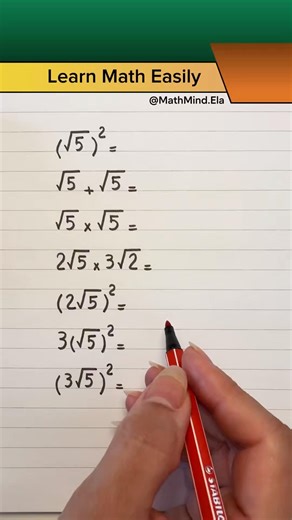 Learn Math Easily
@MathMind.Ela
(√5)² =
√5 + √5 =
√5 x √5 =
2√5 x 3√2 =
(2√5)² =
3(√5)² =
(3√5)² =
STABILO